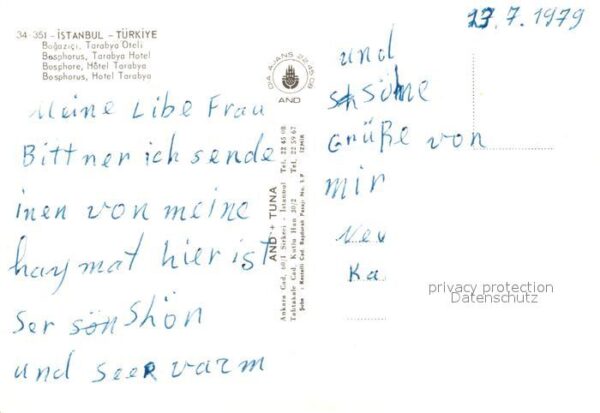 34-351 - İSTANBUL - TÜRKİYE
Boğaziçi, Tarabya Oteli
Bosphorus, Tarabya Hotel
Bosphore, Hôtel Tarabya
Bosphorus, Hotel Tarabya
Meine Libe Frau
Bittner ich sende
inen von meine
haymat hier ist
Ser sön Shön
und seer varm
AND AJANS 224508
AND
AND + TUNA
Ankara Cad. 60/1 Sirkeci - İstanbul Tel. 22 45 08
Tahtakale Cad. Kutlu Han 20/2 Tel. 22 59 67
Şube : Kestelli Cad. Başdurak Pasajı No. 1.P İZMİR
27.7.1979
und
shöne
Grüße von
mir
privacy protection
Datenschutz